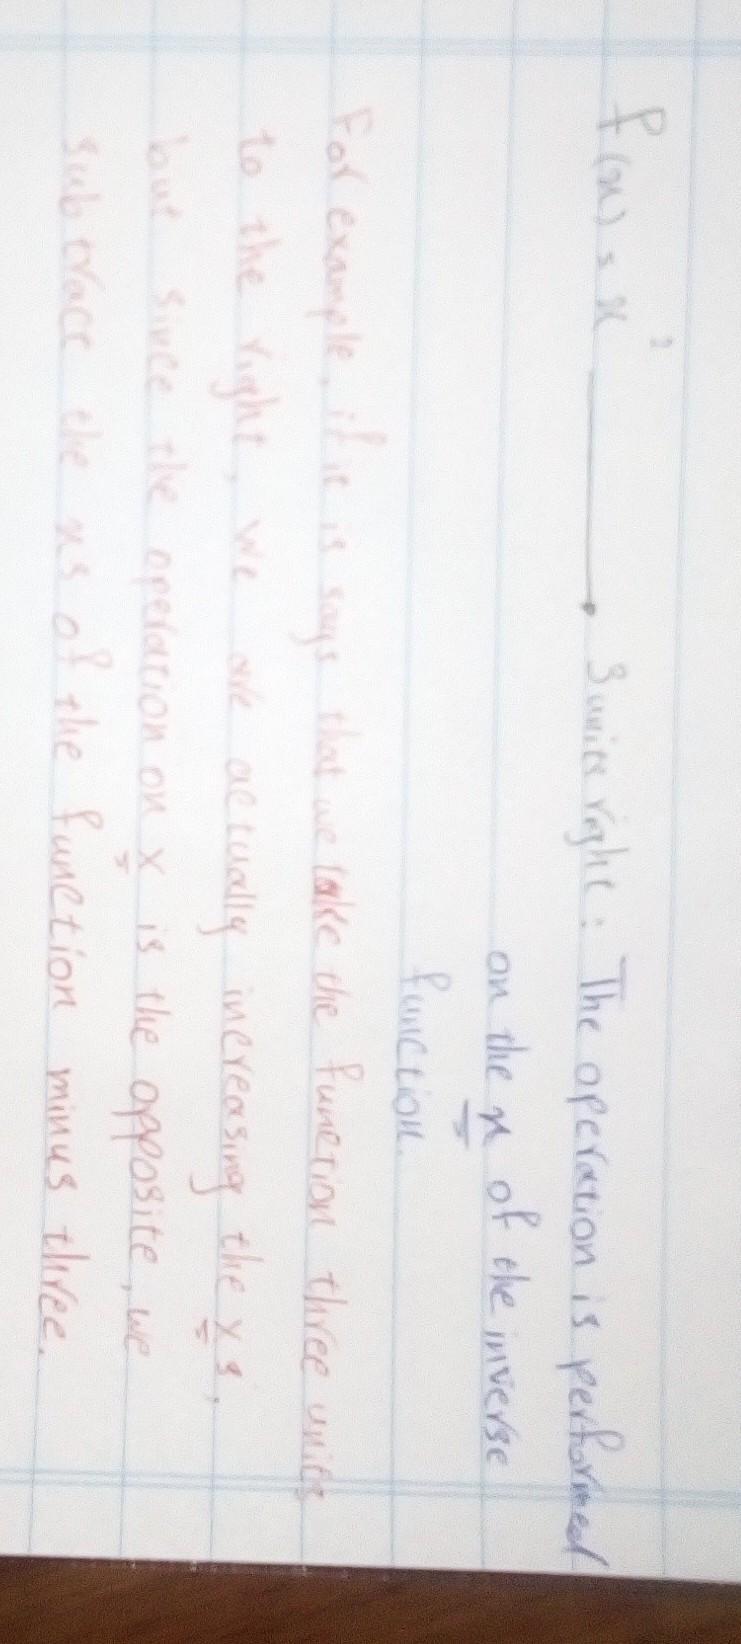 f(x) = x² → 3 units right: The operation is performed
on the x of the inverse
function.
For example, if it is says that we take the function three units
to the right, we are actually increasing the x s,
but since the operation on x is the opposite, we
subtract the xs of the function minus three.